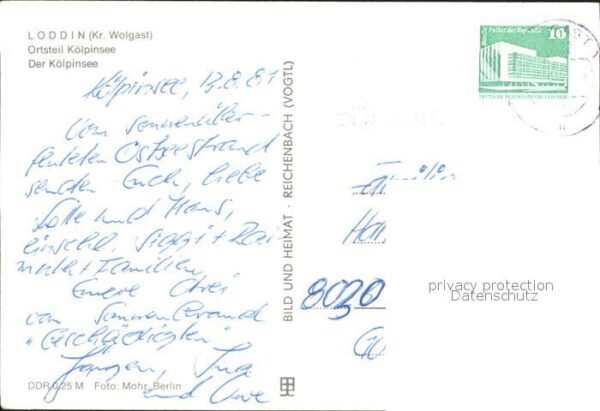 LODDIN (Kr. Wolgast)
Ortsteil Kölpinsee
Der Kölpinsee
Kölpinsee, 13.8.81
Vom sonnenüber-
fluteten Ostseestrand
senden Euch, liebe
Lotte und Hans,
einschl. Siggi + Rai
+ Familien
Eure drei
vom Sonnenbrand
"Geschädigten"
Jürgen, Ina
und Uwe
DDR 0,25 M Foto: Mohr, Berlin
BILD UND HEIMAT · REICHENBACH (VOGTL)
Berlin Palast der Republik 10
DEUTSCHE DEMOKRATISCHE REPUBLIK
8020
privacy protection
Datenschutz